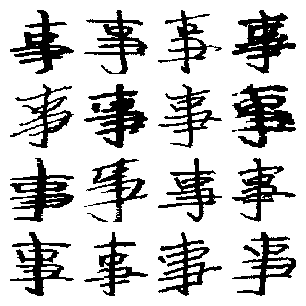 事事事事
事事事事
事事事事
事事事事